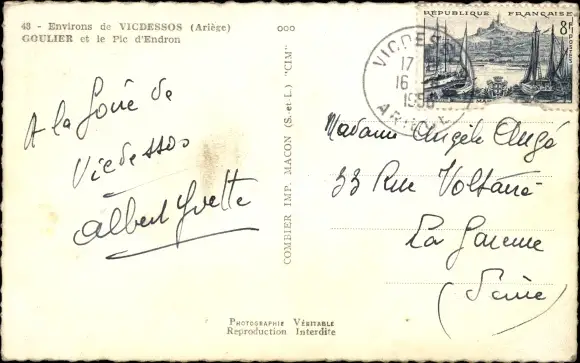 43 - Environs de VICDESSOS (Ariège)
GOULIER et le Pic d'Endron
A la foire de
Vicdessos
Albert Yvette
COMBIER IMP. MACON (S.-et-L.) "CIM"
PHOTOGRAPHIE VÉRITABLE
Reproduction Interdite
RÉPUBLIQUE FRANÇAISE
8F
POSTES
VICDESSOS
17
16
195
ARIÈGE
Madame Angèle Angé
33 Rue Voltaire
La Garenne
(Seine)